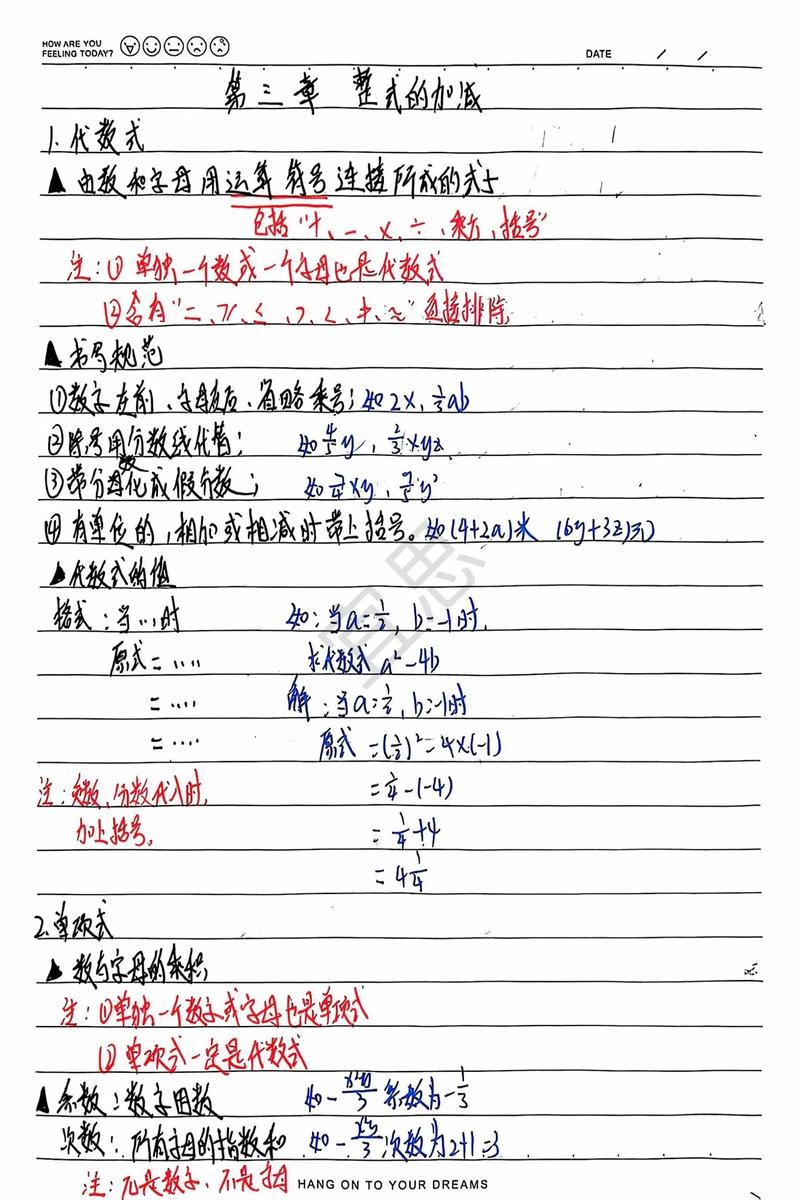 HOW ARE YOU
FEELING TODAY?
DATE / /
第三章 整式的加减
1. 代数式
▲ 由数和字母用运算符号连接所成的式子
包括"+、-、×、÷、乘方、括号"
注:① 单独一个数或一个字母也是代数式
② 含有"=、≥、≤、>、<、≠、≈"直接排除
▲ 书写规范
①数字在前、字母在后、省略乘号;如2x,⅓ab
②除号用分数线代替; 如 4/5 y, 2/3 xyz
③带分数化成假分数; 如 7/4 xy, 7/5 y²
④有单位的,相加或相减时带上括号。如(4+2a)米 (6y+3z)元
▲代数式的值
格式:当…时 如:当a=½,b=-1时,
原式=…… 求代数式 a²-4b
=…… 解:当a=½,b=-1时
=…… 原式=(½)²-4×(-1)
注:负数、分数代入时, =¼-(-4)
加上括号。 =¼+4
=4¼
2.单项式
▲ 数与字母的乘积
注:①单独一个数字或字母也是单项式
② 单项式一定是代数式
▲系数:数字因数 如 系数为-⅓
次数:所有字母的指数和 如 次数为2+1=3
注:π是数字、不是字母
HANG ON TO YOUR DREAMS
宜思